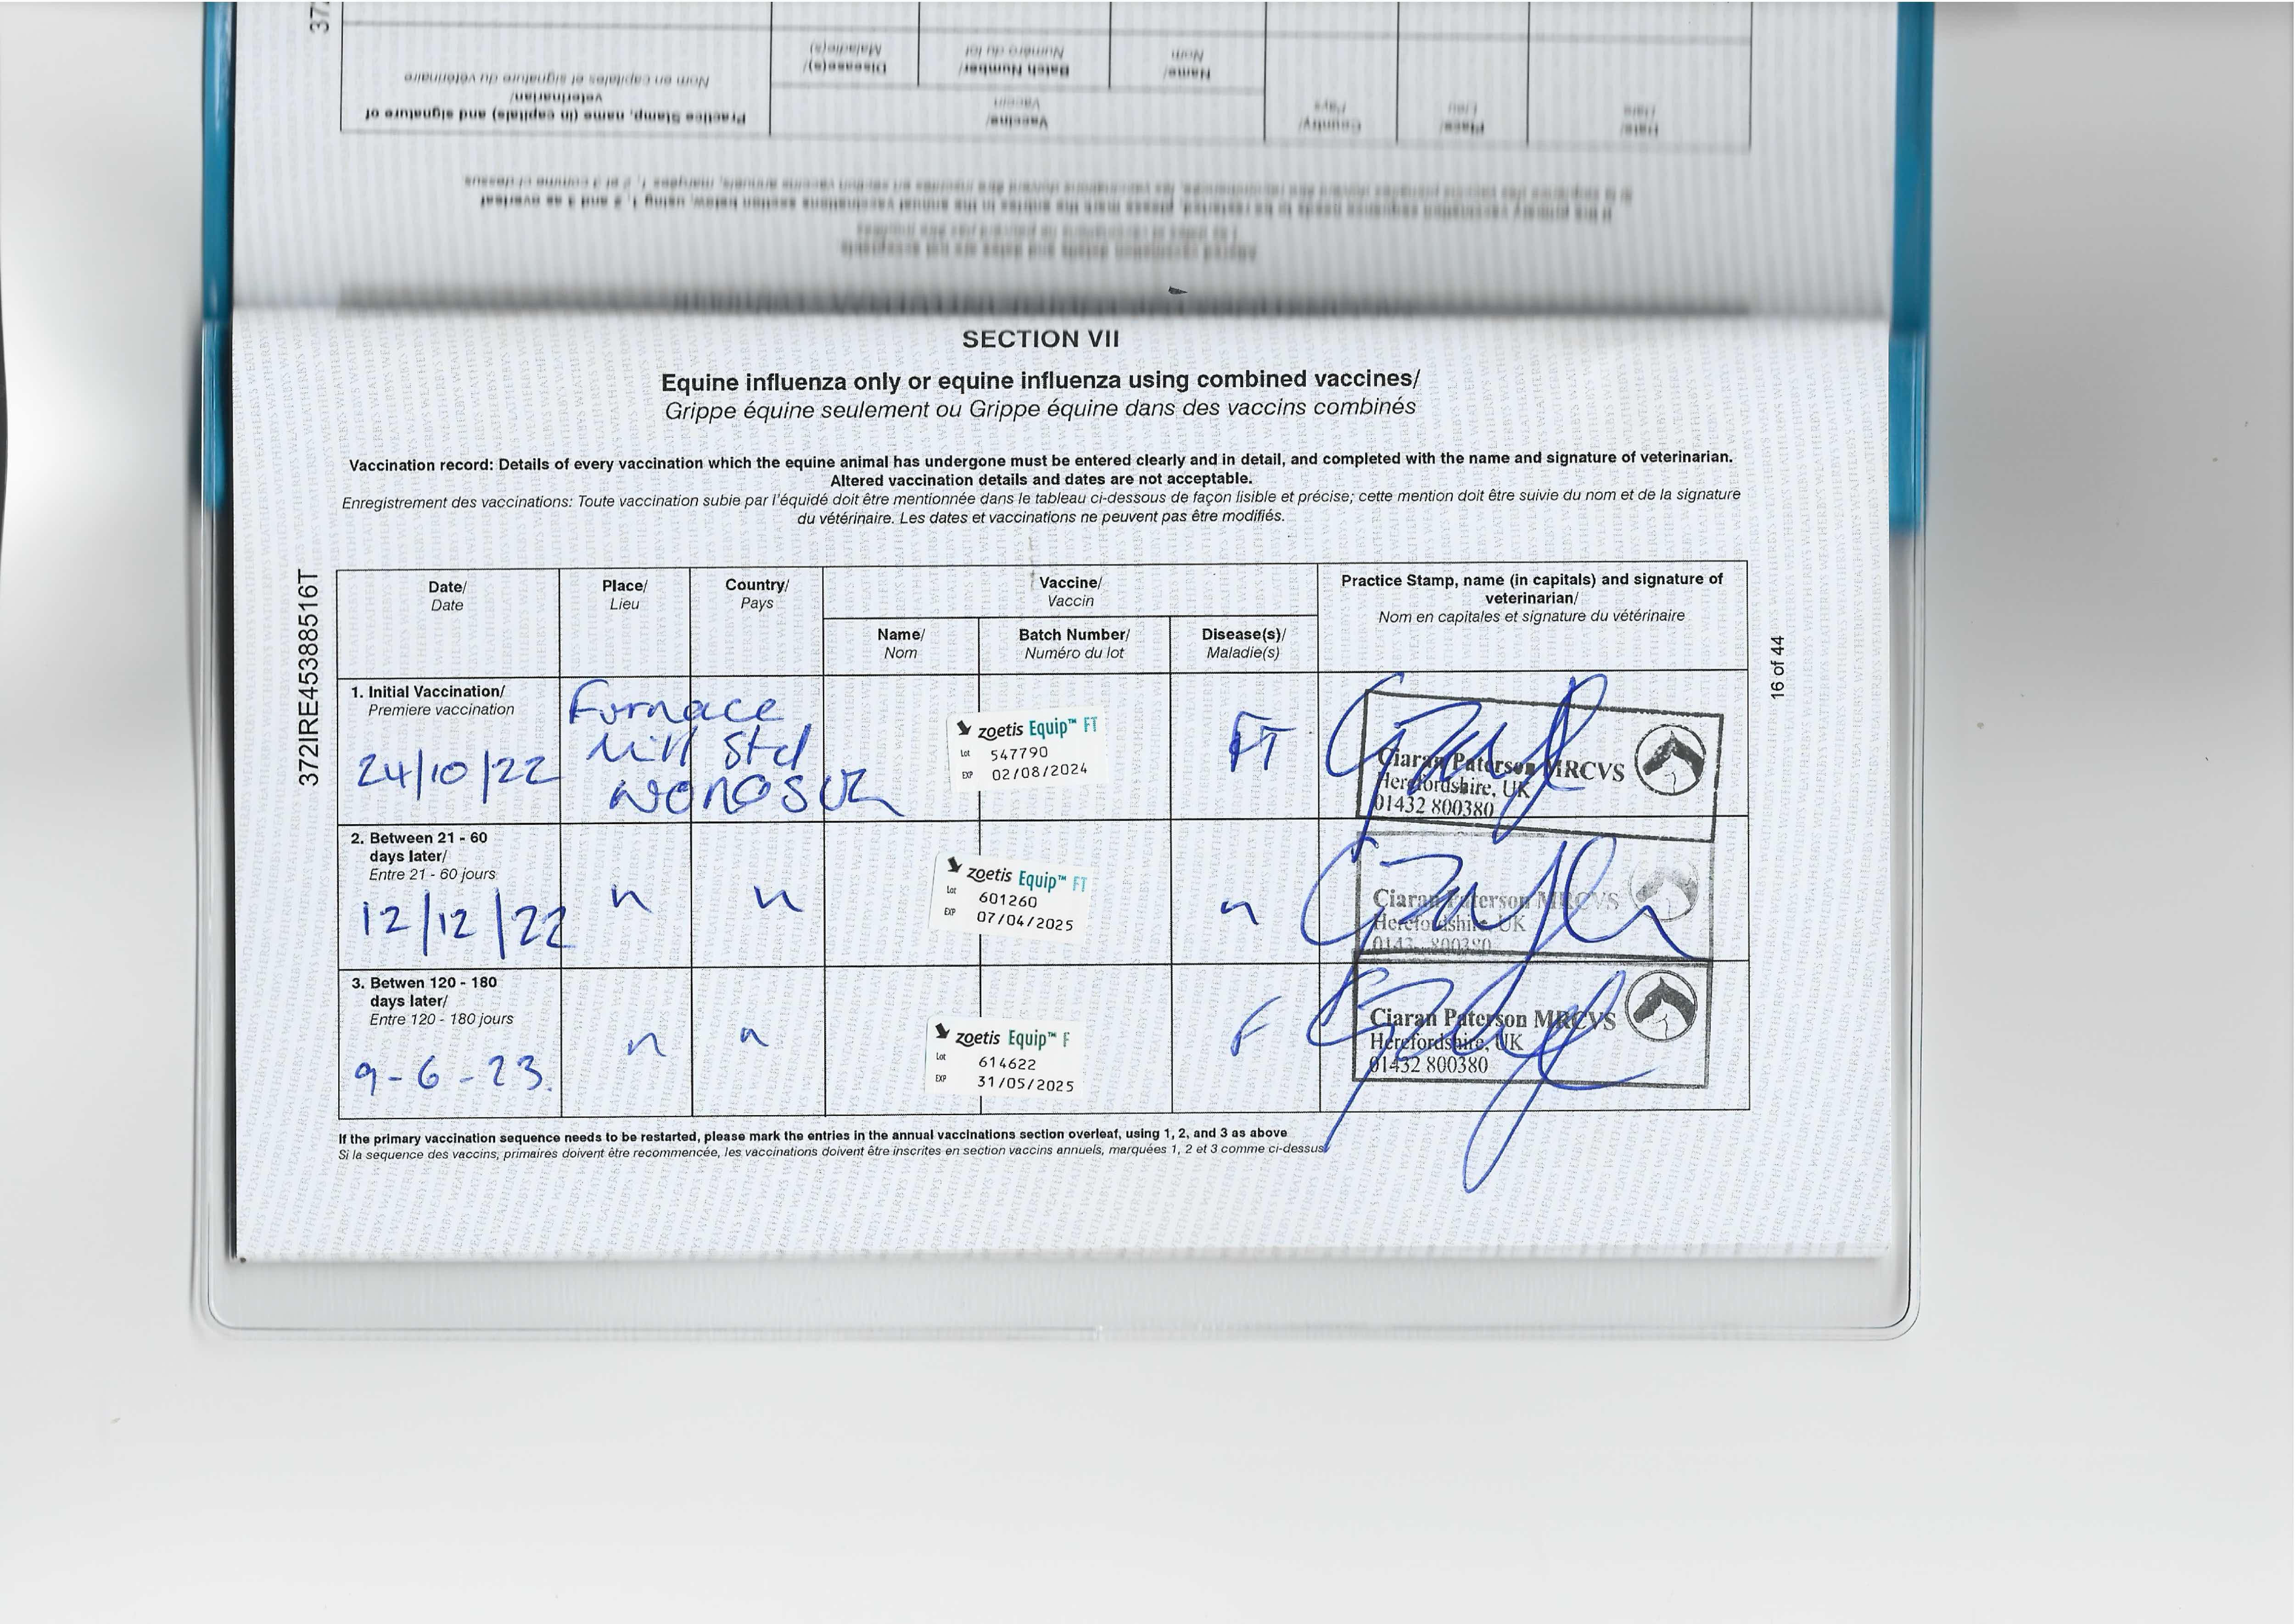 Nom en capitales et signature du vétérinaire
Practice Stamp, name (in capitals) and signature of
veterinarian/
Disease(s)/
Maladie(s)
Batch Number/
Numéro du lot
Name/
Nom
Vaccine/
Vaccin
Country/
Pays
Place/
Lieu
Date/
Date
If the primary vaccination sequence needs to be restarted, please mark the entries in the annual vaccinations section below, using 1, 2 and 3 as overleaf
SECTION VII
Equine influenza only or equine influenza using combined vaccines/
Grippe équine seulement ou Grippe équine dans des vaccins combinés
Vaccination record: Details of every vaccination which the equine animal has undergone must be entered clearly and in detail, and completed with the name and signature of veterinarian.
Altered vaccination details and dates are not acceptable.
Enregistrement des vaccinations: Toute vaccination subie par l'équidé doit être mentionnée dans le tableau ci-dessous de façon lisible et précise; cette mention doit être suivie du nom et de la signature
du vétérinaire. Les dates et vaccinations ne peuvent pas être modifiés.
372IRE45388516T
16 of 44
Date/
Date
Place/
Lieu
Country/
Pays
Vaccine/
Vaccin
Name/
Nom
Batch Number/
Numéro du lot
Disease(s)/
Maladie(s)
Practice Stamp, name (in capitals) and signature of
veterinarian/
Nom en capitales et signature du vétérinaire
1. Initial Vaccination/
Premiere vaccination
24/10/22
Furnace
Mill Std
zoetis Equip™ FT
Lot 547790
EXP 02/08/2024
FT
Ciaran Paterson MRCVS
Herefordshire, UK
01432 800380
2. Between 21 - 60
days later/
Entre 21 - 60 jours
12/12/22
zoetis Equip™ FT
Lot 601260
EXP 07/04/2025
Ciaran Paterson MRCVS
Herefordshire, UK
3. Betwen 120 - 180
days later/
Entre 120 - 180 jours
9-6-23.
zoetis Equip™ F
Lot 614622
EXP 31/05/2025
F
Ciaran Paterson MRCVS
Herefordshire, UK
01432 800380
If the primary vaccination sequence needs to be restarted, please mark the entries in the annual vaccinations section overleaf, using 1, 2, and 3 as above
Si la sequence des vaccins, primaires doivent être recommencée, les vaccinations doivent être inscrites en section vaccins annuels, marquées 1, 2 et 3 comme ci-dessus